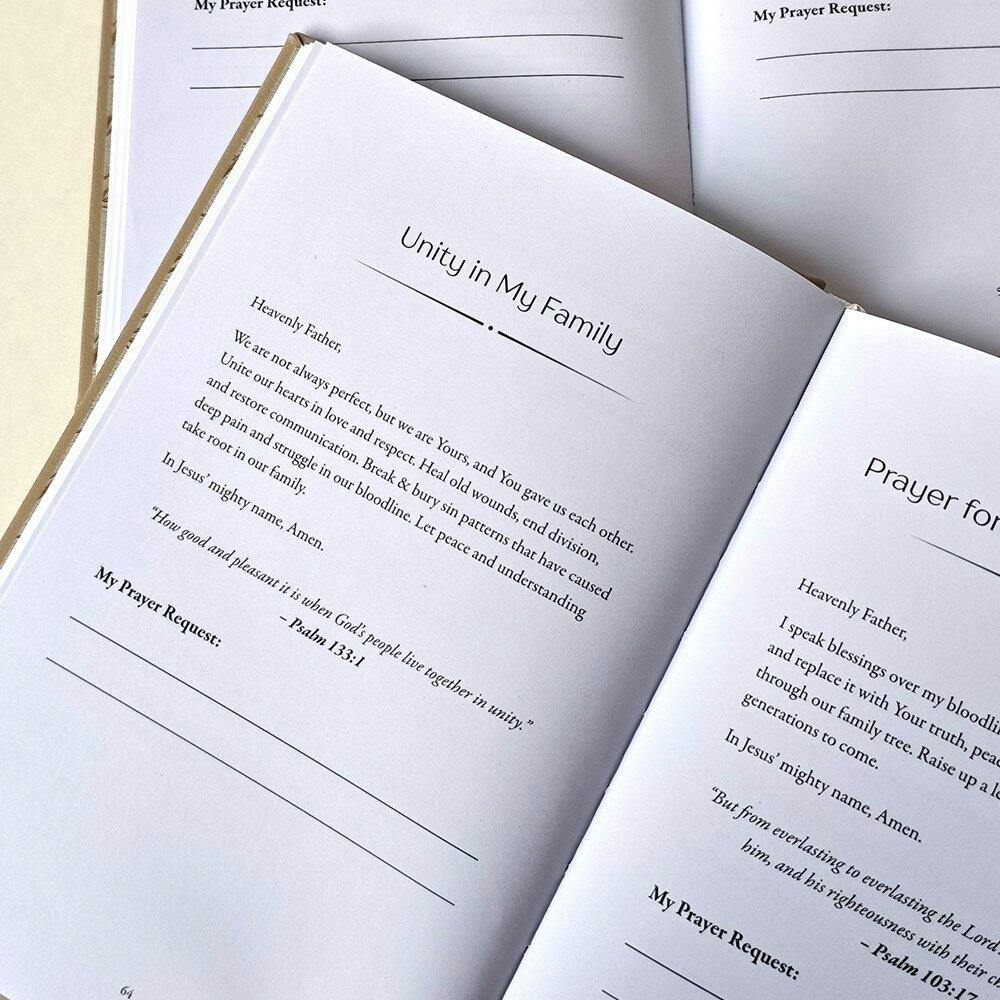 My Prayer Request:
My Prayer Request:
Unity in My Family
Heavenly Father,
We are not always perfect, but we are Yours, and You gave us each other.
Unite our hearts in love and respect. Heal old wounds, end division,
and restore communication. Break & bury sin patterns that have caused
deep pain and struggle in our bloodline. Let peace and understanding
take root in our family.
In Jesus' mighty name, Amen.
"How good and pleasant it is when God's people live together in unity."
– Psalm 133:1
My Prayer Request:
64
Prayer for
Heavenly Father,
I speak blessings over my
and replace it with Your truth,
through our family tree. Raise up a
generations to come.
In Jesus' mighty name, Amen.
"But from everlasting to everlasting the Lord's
him, and his righteousness with their
– Psalm 103:17
My Prayer Request: